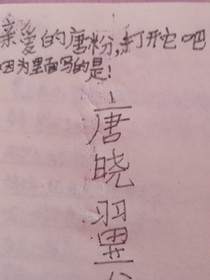 亲爱的唐粉,打开它吧
因为里面写的是!
唐
晓
翼